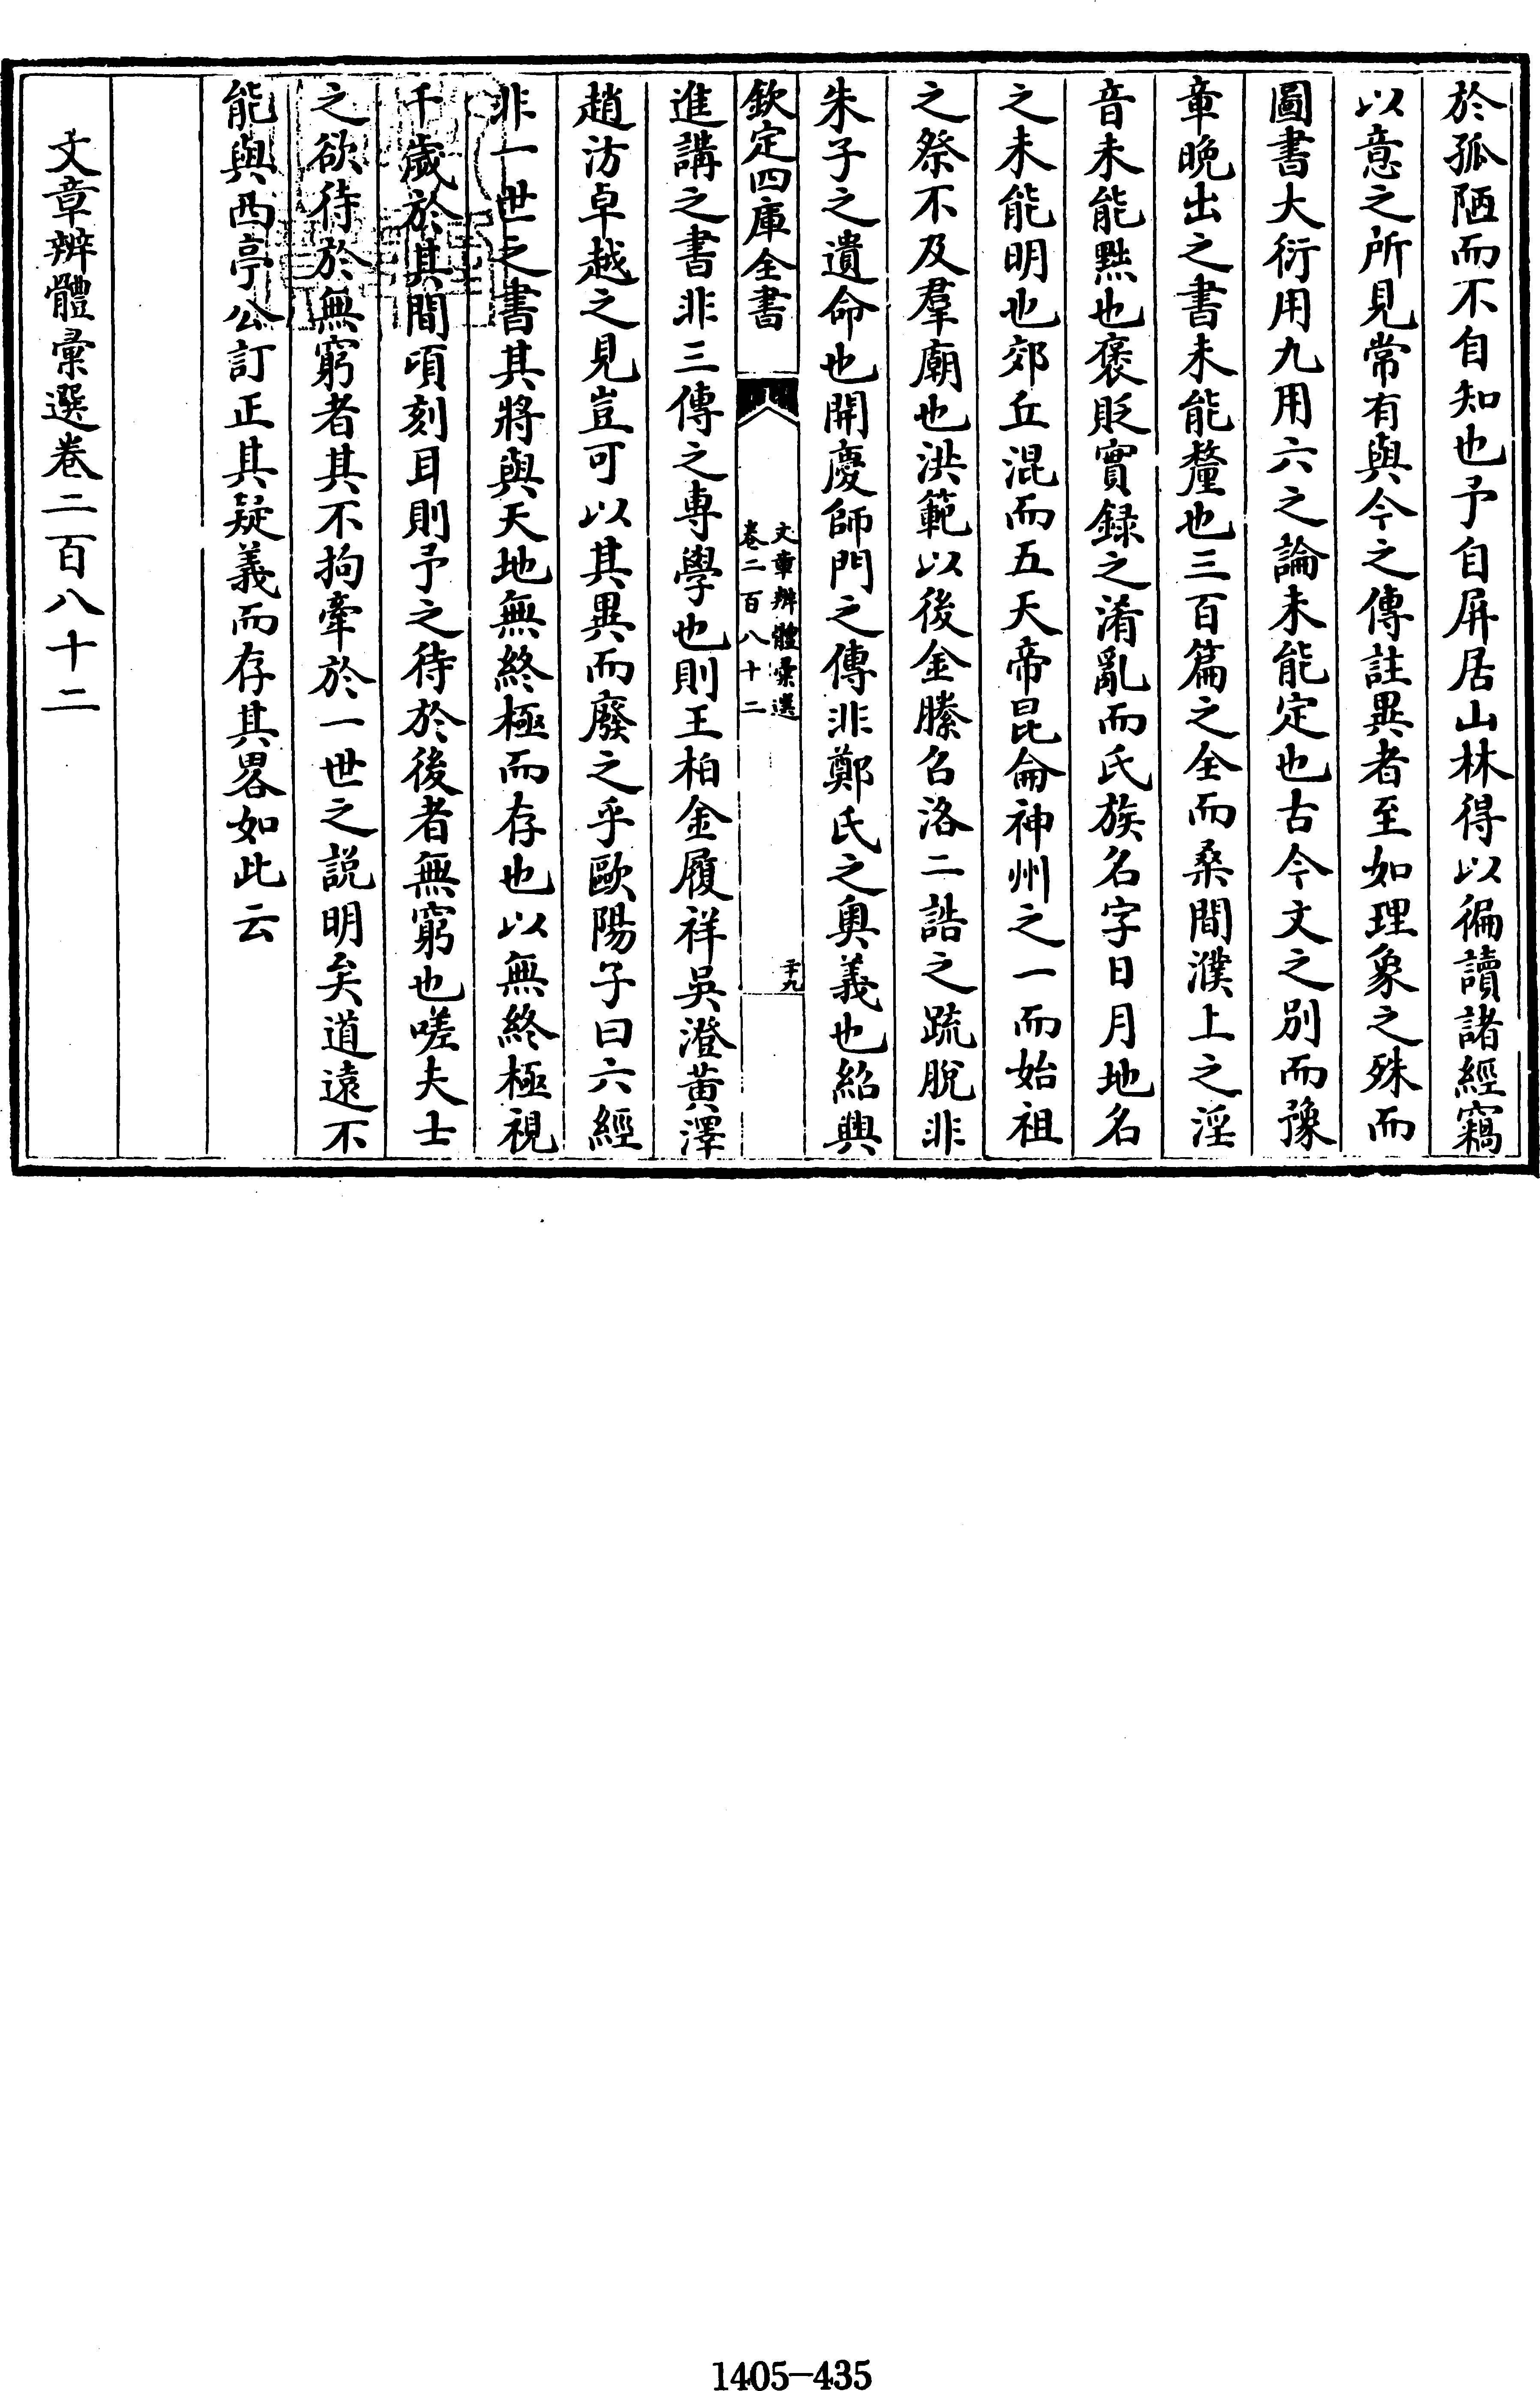 於孤陋而不自知也予自屏居山林得以徧讀諸經竊
以意之所見常有與今之傳註異者至如理象之殊而
圖書大衍用九用六之論未能定也古今文之別而豫
章晚出之書未能釐也三百篇之全而桑間濮上之淫
音未能黜也褒貶實録之淆亂而氏族名字日月地名
之未能明也郊丘混而五天帝昆侖神州之一而始祖
之祭不及羣廟也洪範以後金縢召洛二誥之疏脫非
朱子之遺命也開慶師門之傳非鄭氏之奧義也紹興
欽定四庫全書
文章辨體彙選
卷二百八十二
二十九
進講之書非三傳之專學也則王柏金履祥吳澄黃澤
趙汸卓越之見豈可以其異而廢之乎歐陽子曰六經
非一世之書其將與天地無終極而存也以無終極視
千歲於其間頃刻耳則予之待於後者無窮也嗟夫士
之欲待於無窮者其不拘牽於一世之説明矣道遠不
能與西亭公訂正其疑義而存其畧如此云
文章辨體彙選卷二百八十二
1405-435